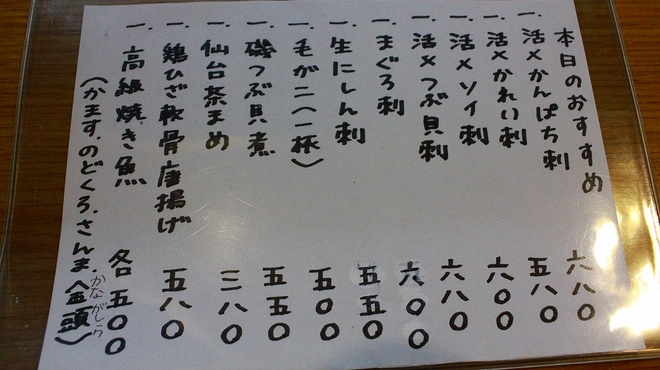 本日のおすすめ
一. 活〆かんぱち刺 六八〇
一. 活〆かれい刺 五八〇
一. 活〆ソイ刺 六〇〇
一. 活〆つぶ貝刺 六八〇
一. まぐろ刺 六〇〇
一. 生にしん刺 五五〇
一. 毛がニ(一杯) 五〇〇
一. 磯つぶ貝煮 五五〇
一. 仙台茶まめ 三八〇
一. 鶏ひざ軟骨唐揚げ 五八〇
一. 高級焼き魚 各五〇〇
(かます.のどくろ.さんま.金頭)
かながしら